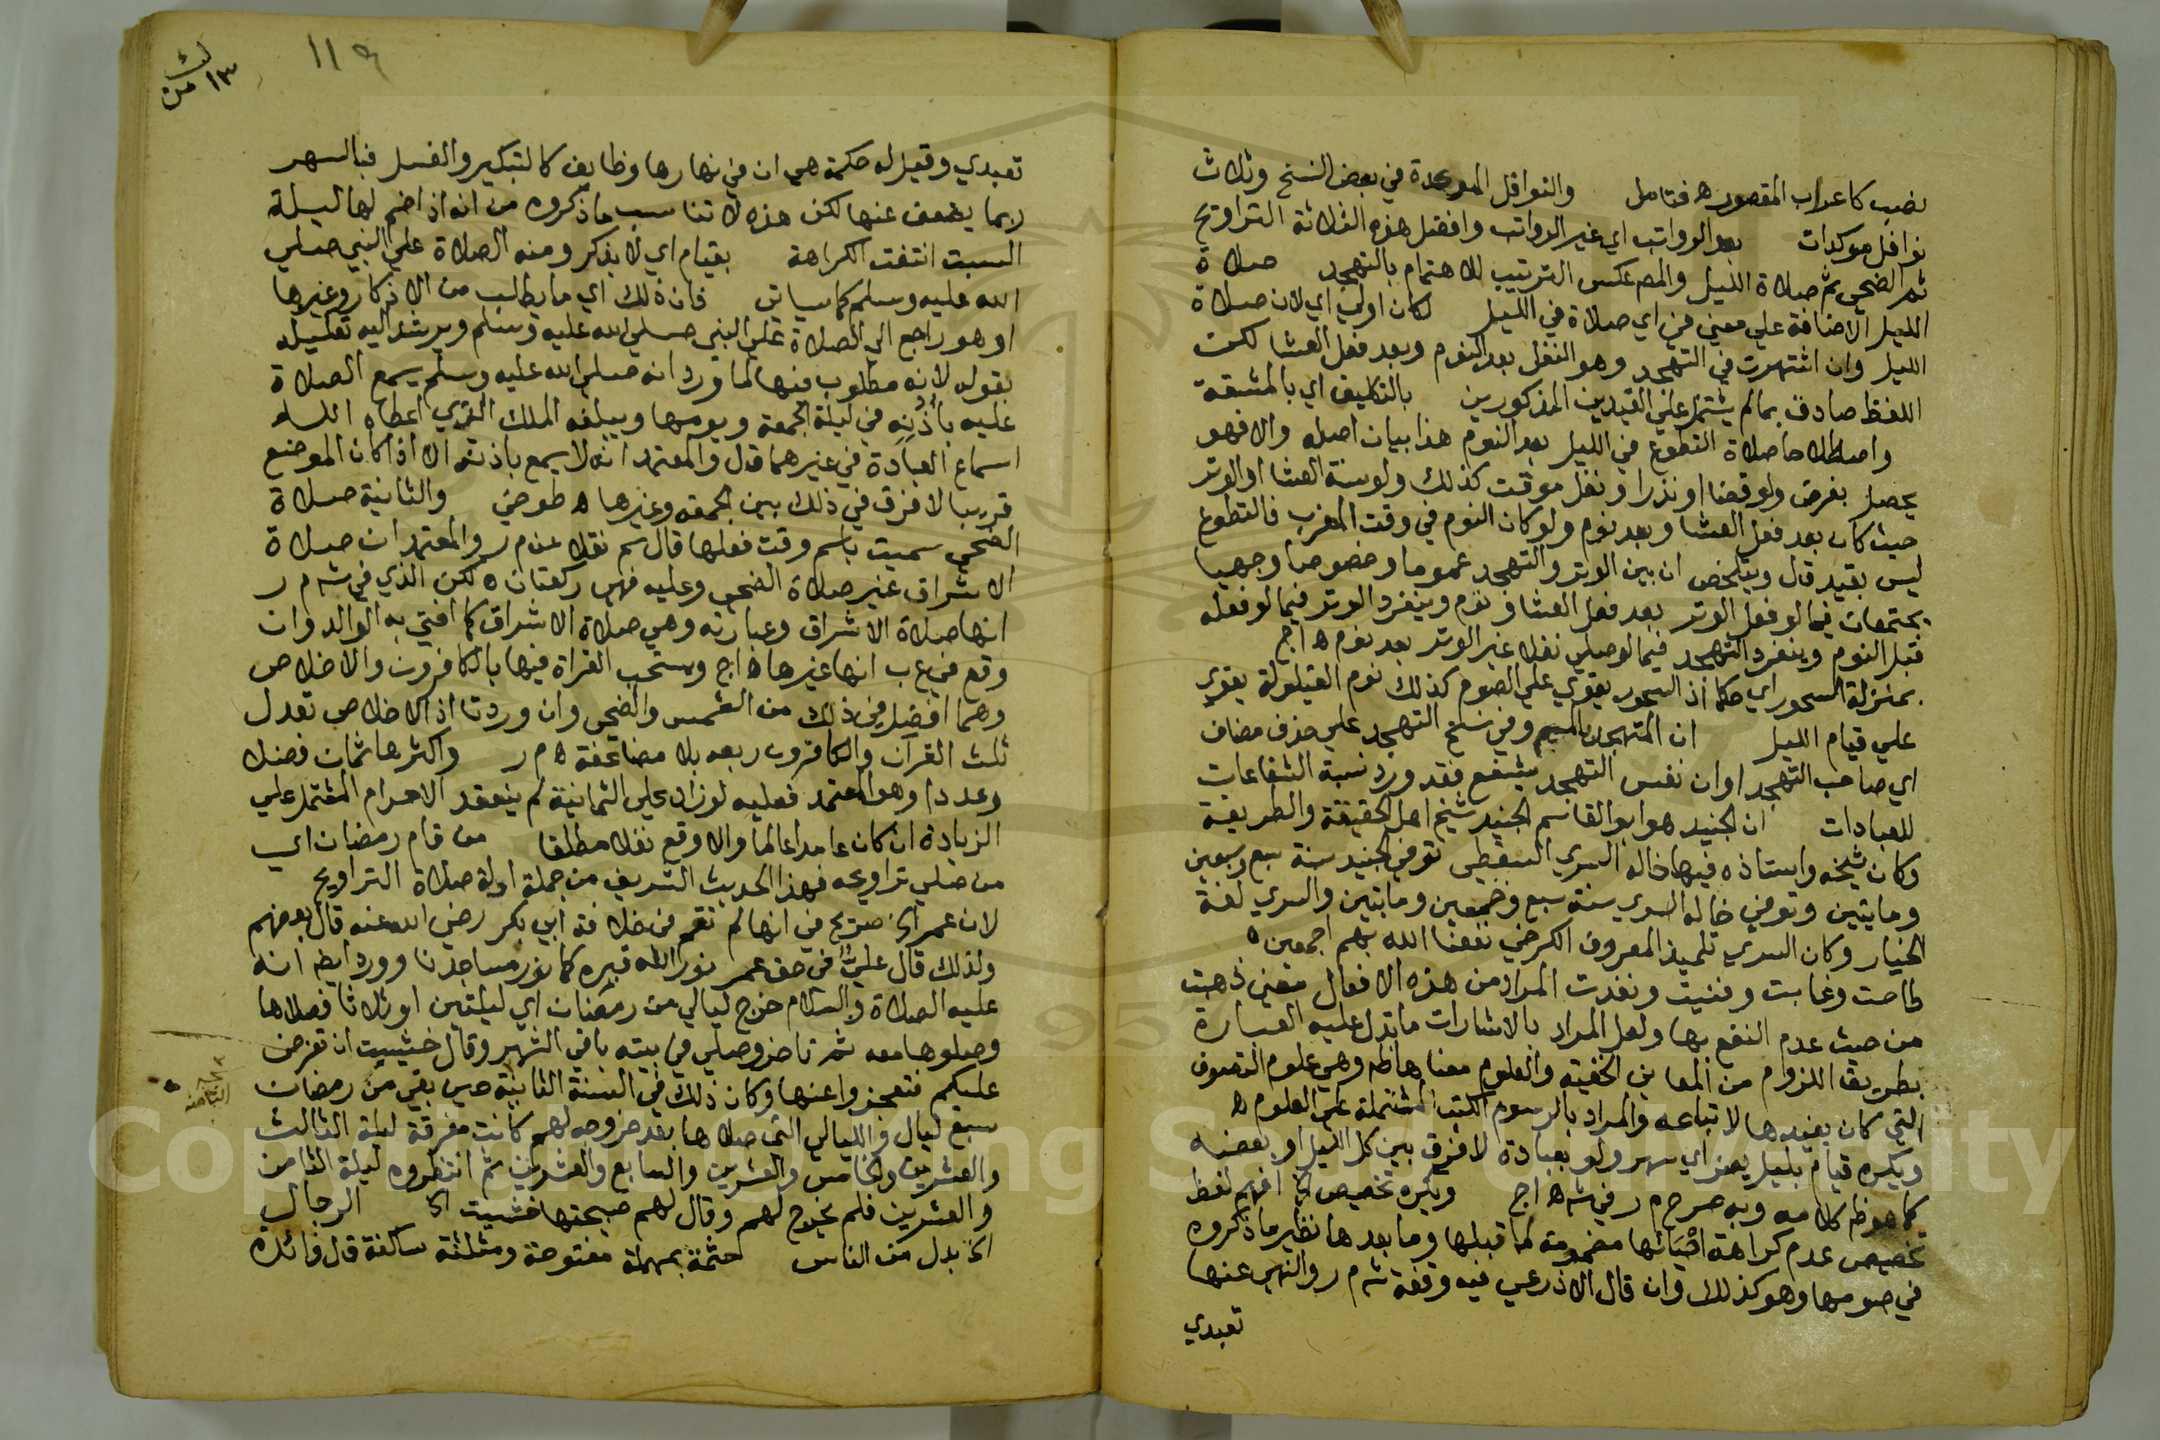 نصب كاعراب المقصور ه فتامل والنوافل الموكدة في بعض النسخ وثلاث
نوافل موكدات بعد الرواتب اي غير الرواتب وافضل هذه الثلاثة التراويح
ثم الضحى ثم صلاة الليل والمص عكس الترتيب للاهتمام بالتهجد صلاة
الليل الاضافة على معنى في اي صلاة في الليل لكان اولى اي لان صلاة
الليل وان اشتهرت في التهجد وهو النفل بعد النوم وبعد فعل العشا لكن
اللفظ صادق بما لم يشتمل على القيدين المذكورين بالتكليف اي بالمشقة
واصطلاحا صلاة التطوع في الليل بعد النوم هذا بيان اصله والا فهو
يحصل بفرض ولو قضا او نذرا ونفل موقت كذلك ولو سنة العشا او الوتر
حيث كان بعد فعل العشا وبعد نوم ولو كان النوم في وقت المغرب فالتطوع
ليس بقيد قال ويتلخص ان بين الوتر والتهجد عموما وخصوصا وجهيا
يجتمعان فيما لو فعل الوتر بعد فعل العشا ونوم وينفرد الوتر فيما لو فعله
قبل النوم وينفرد التهجد فيما لو صلى نفلا غير الوتر بعد نوم ه اج
بمنزلة السحور اي كما ان السحور يقوي على الصوم كذلك نوم القيلولة يقوي
على قيام الليل ان المتهجد بالميم وفي نسخ التهجد على حذف مضاف
اي صاحب التهجد او ان نفس التهجد يشفع فقد ورد نسبة الشفاعات
للعبادات ان الجنيد هو ابو القاسم الجنيد شيخ اهل الحقيقة والطريقة
وكان شيخه واستاذه فيها خاله السري السقطي توفي الجنيد سنة سبع وسبعين
ومايتين وتوفي خاله السري سنة سبع وخمسين ومايتين والسري لغة
الخيار وكان السري تلميذ المعروف الكرخي نفعنا الله بهم اجمعين ه
طاحت وغابت وفنيت ونفدت المراد من هذه الافعال معنى ذهبت
من حيث عدم النفع بها ولعل المراد بالاشارات ما تدل عليه العبارة
بطريق اللزوم من المعاني الخفية والعلوم معناها ظه وهي علوم التصوف
التي كان يفيدها لاتباعه والمراد بالرسوم الكتب المشتملة على العلوم ه
ويكره قيام بليل يضر اي سهر ولو بعبادة لا فرق بين كل الليل او بعضه
كما هو ظ كلامه وبه صرح م ر في شه ه اج ويكره تخصيص الخ افهم لفظ
تخصيص عدم كراهة احيائها مضمومة لما قبلها وما بعدها نظير ما ذكروه
في صومها وهو كذلك وان قال الاذرعي فيه وقفة شه م ر والنهي عنها
تعبدي
١١٩
تعبدي وقيل له حكمة هي ان في نهارها وظايف كالتبكير والغسل فبالسهر
ربما يضعف عنها لكن هذه لا تناسب ما ذكروه من انه اذا ضم لها ليلة
السبت انتفت الكراهة بقيام اي لا بذكر ومنه الصلاة على النبي صلى
الله عليه وسلم كما سياتي فان ذلك اي ما يطلب من الاذكار وغيرها
او هو راجع الى الصلاة على النبي صلى الله عليه وسلم ويرشد اليه تعليله
بقوله لانه مطلوب فيها لما ورد انه صلى الله عليه وسلم يسمع الصلاة
عليه باذنه في ليلة الجمعة ويومها ويبلغه الملك الذي اعطاه الله
اسماع العبادة في غيرهما قال والمعتمد انه لا يسمع باذنه الا اذا كان الموضع
قريبا لا فرق في ذلك بين الجمعه وغيرها ه طوخي والثانية صلاة
الضحى سميت باسم وقت فعلها قال سم نقلا عن م ر والمعتمد ان صلاة
الاشراق غير صلاة الضحى وعليه فهي ركعتان ه لكن الذي في شه م ر
انها صلاة الاشراق وعبارته وهي صلاة الاشراق كما افتى به الوالد وان
وقع في ع ب انها غيرها ه اج ويستحب القراة فيها بالكافرون والاخلاص
وهما افضل في ذلك من الشمس والضحى وان وردتا اذ الاخلاص تعدل
ثلث القرآن والكافرون ربعه بلا مضاعفة ه م ر واكثرها ثمان فضلا
وعددا وهو المعتمد فعليه لو زاد على الثمانية لم ينعقد الاحرام المشتمل على
الزيادة ان كان عامدا عالما والا وقع نفلا مطلقا من قام رمضان اي
من صلى تراويحه فهذا الحديث الشريف من جملة ادلة صلاة التراويح
لان عمر الخ صريح في انها لم تقم في خلافة ابي بكر رضي الله عنه قال بعضهم
ولذلك قال علي في حق عمر نور الله قبره كما نور مساجدنا وورد ايضا انه
عليه الصلاة والسلام خرج ليالي من رمضان اي ليلتين او ثلاثا فصلاها
وصلوها معه ثم تاخر وصلى في بيته باقي الشهر وقال خشيت ان تفرض
عليكم فتعجزوا عنها وكان ذلك في السنة الثانية حين بقي من رمضان
سبع ليال والليالي التي صلاها بعد خروجه لهم كانت مفرقة ليلة الثالث
والعشرين والخامس والعشرين والسابع والعشرين ثم انتظروه ليلة الثامن
والعشرين فلم يخرج لهم وقال لهم صبيحتها خشيت الخ الرجال
الخ بدل من الناس حثمة بمهملة مفتوحة ومثلثة ساكنة قال فائدة